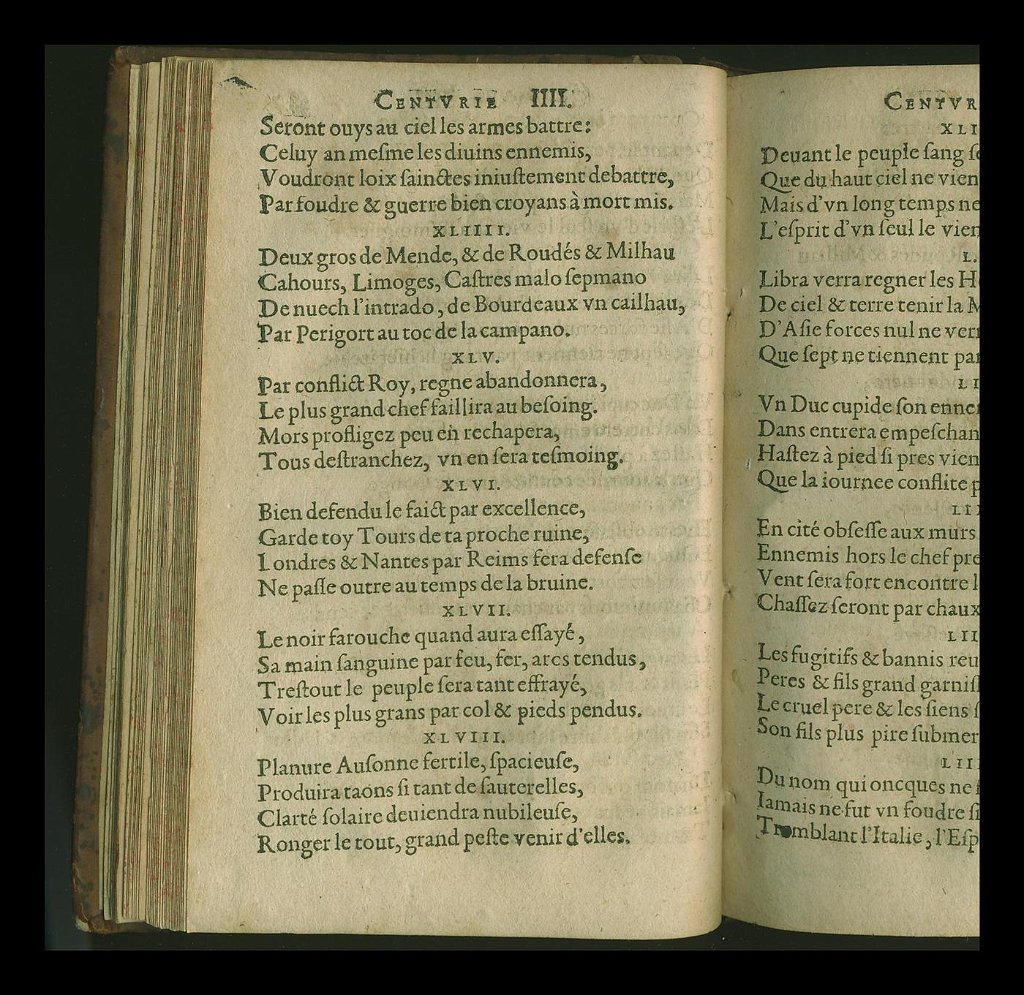 CENTVRIE IIII.
Seront ouys au ciel les armes battre:
Celuy an meſme les diuins ennemis,
Voudront loix ſainctes iniuſtement debattre,
Par foudre & guerre bien croyans à mort mis.
XLIIII.
Deux gros de Mende, & de Roudés & Milhau
Cahours, Limoges, Caſtres malo ſepmano
De nuech l'intrado, de Bourdeaux vn cailhau,
Par Perigort au toc de la campano.
XLV.
Par conflict Roy, regne abandonnera,
Le plus grand chef faillira au beſoing.
Mors profligez peu en rechapera,
Tous deſtranchez, vn en ſera teſmoing.
XLVI.
Bien defendu le faict par excellence,
Garde toy Tours de ta proche ruine,
Londres & Nantes par Reims fera defenſe
Ne paſſe outre au temps de la bruine.
XLVII.
Le noir farouche quand aura eſſayé,
Sa main ſanguine par feu, fer, arcs tendus,
Treſtout le peuple ſera tant effrayé,
Voir les plus grans par col & pieds pendus.
XLVIII.
Planure Auſonne fertile, ſpacieuſe,
Produira taons ſi tant de ſauterelles,
Clarté ſolaire deuiendra nubileuſe,
Ronger le tout, grand peſte venir d'elles.
CENTVR
XLI
Deuant le peuple ſang
Que du haut ciel ne vien
Mais d'vn long temps ne
L'eſprit d'vn ſeul le vien
L.
Libra verra regner les H
De ciel & terre tenir la M
D'Aſie forces nul ne verr
Que ſept ne tiennent par
LI
Vn Duc cupide ſon enne
Dans entrera empeſchan
Haſtez à pied ſi pres vien
Que la iournee conflite p
LII
En cité obſeſſe aux murs
Ennemis hors le chef pre
Vent ſera fort encontre l
Chaſſez ſeront par chaux
LII
Les fugitifs & bannis reu
Peres & fils grand garniſ
Le cruel pere & les ſiens ſ
Son fils plus pire ſubmer
LII
Du nom qui oncques ne
Iamais ne fut vn foudre ſi
Tremblant l'Italie, l'Eſp